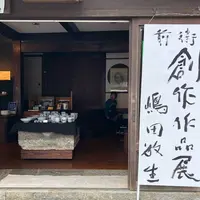 前衛
創作作品展
嶋田敏生